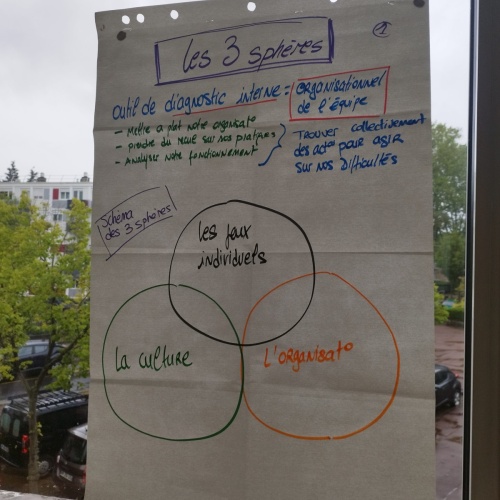 Les 3 sphères
1
outil de diagnostic interne = organisationnel
de l'équipe
- Mettre à plat notre organisat°
- prendre du recul sur nos pratiques
- analyser notre fonctionnement
Trouver collectivement
des act° pour agir
sur nos Difficultés
Schéma
des 3 sphères
Les jeux
individuels
La culture
L'organisat°